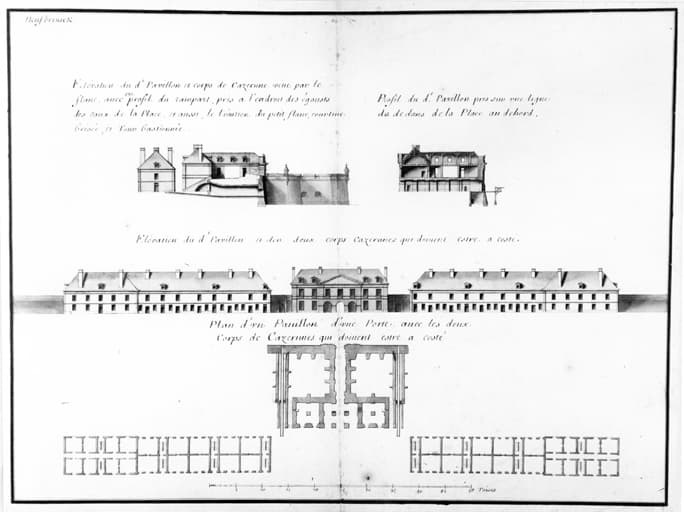 Neufbrisack
Elévation du dt. Pavillon et corps de Cazerne, veue par le
flanc, avec profil du rampart, pris a l'endroit des égousts
des eaux de la Place, et aussi le du petit flanc, courtine
brisée, et Tour bastionnée.
Profil du dt. Pavillon pris sur une ligne
du dedans de la Place au dehord.
Elévation du dt. Pavillon et des deux corps Cazernes qui doivent estre a costé.
Plan d'un Pavillon d'une Porte, avec les deux
Corps de Cazernes qui doivent estre a costé
Toises